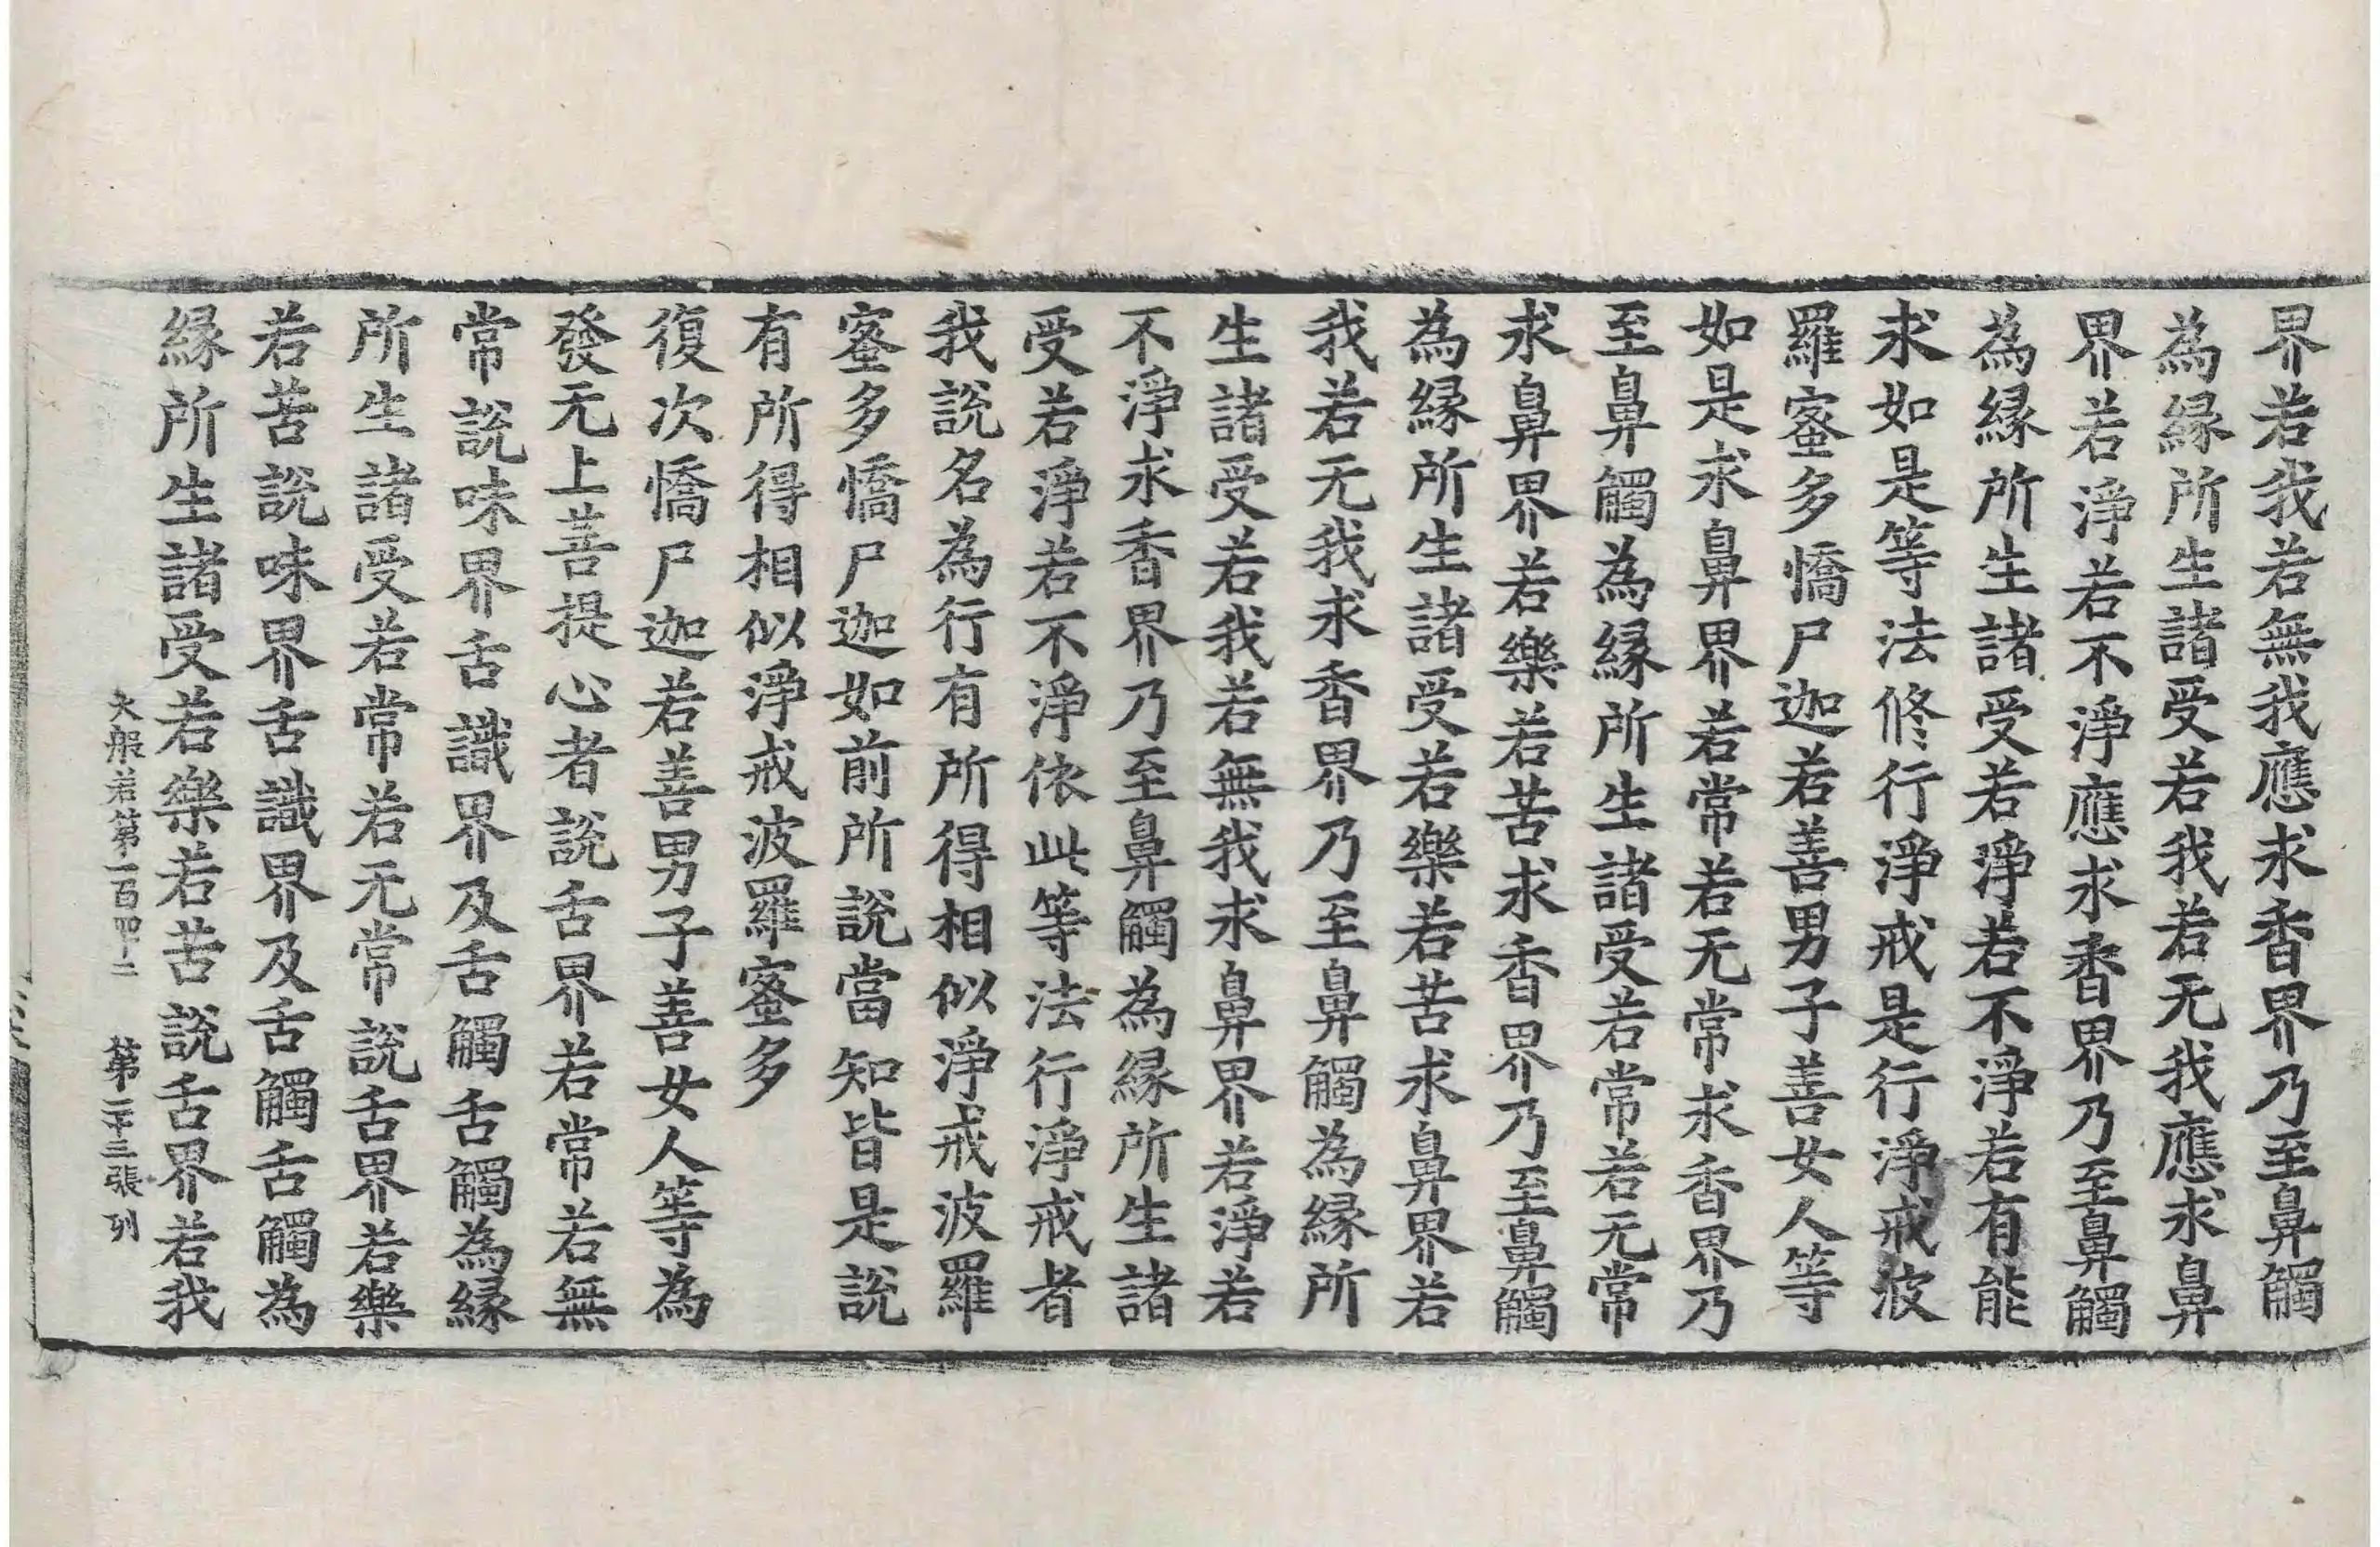 界若我若無我應求香界乃至鼻觸
為縁所生諸受若我若无我應求鼻
界若淨若不淨應求香界乃至鼻觸
為縁所生諸受若淨若不淨若有能
求如是等法修行淨戒是行淨戒波
羅蜜多憍尸迦若善男子善女人等
如是求鼻界若常若无常求香界乃
至鼻觸為縁所生諸受若常若无常
求鼻界若樂若苦求香界乃至鼻觸
為縁所生諸受若樂若苦求鼻界若
我若无我求香界乃至鼻觸為縁所
生諸受若我若無我求鼻界若淨若
不淨求香界乃至鼻觸為縁所生諸
受若淨若不淨依此等法行淨戒者
我說名為行有所得相似淨戒波羅
蜜多憍尸迦如前所說當知皆是說
有所得相似淨戒波羅蜜多
復次憍尸迦若善男子善女人等為
發无上菩提心者說舌界若常若無
常說味界舌識界及舌觸舌觸為縁
所生諸受若常若无常說舌界若樂
若苦說味界舌識界及舌觸舌觸為
縁所生諸受若樂若苦說舌界若我
大般若第一百四十二 第二十三張 列